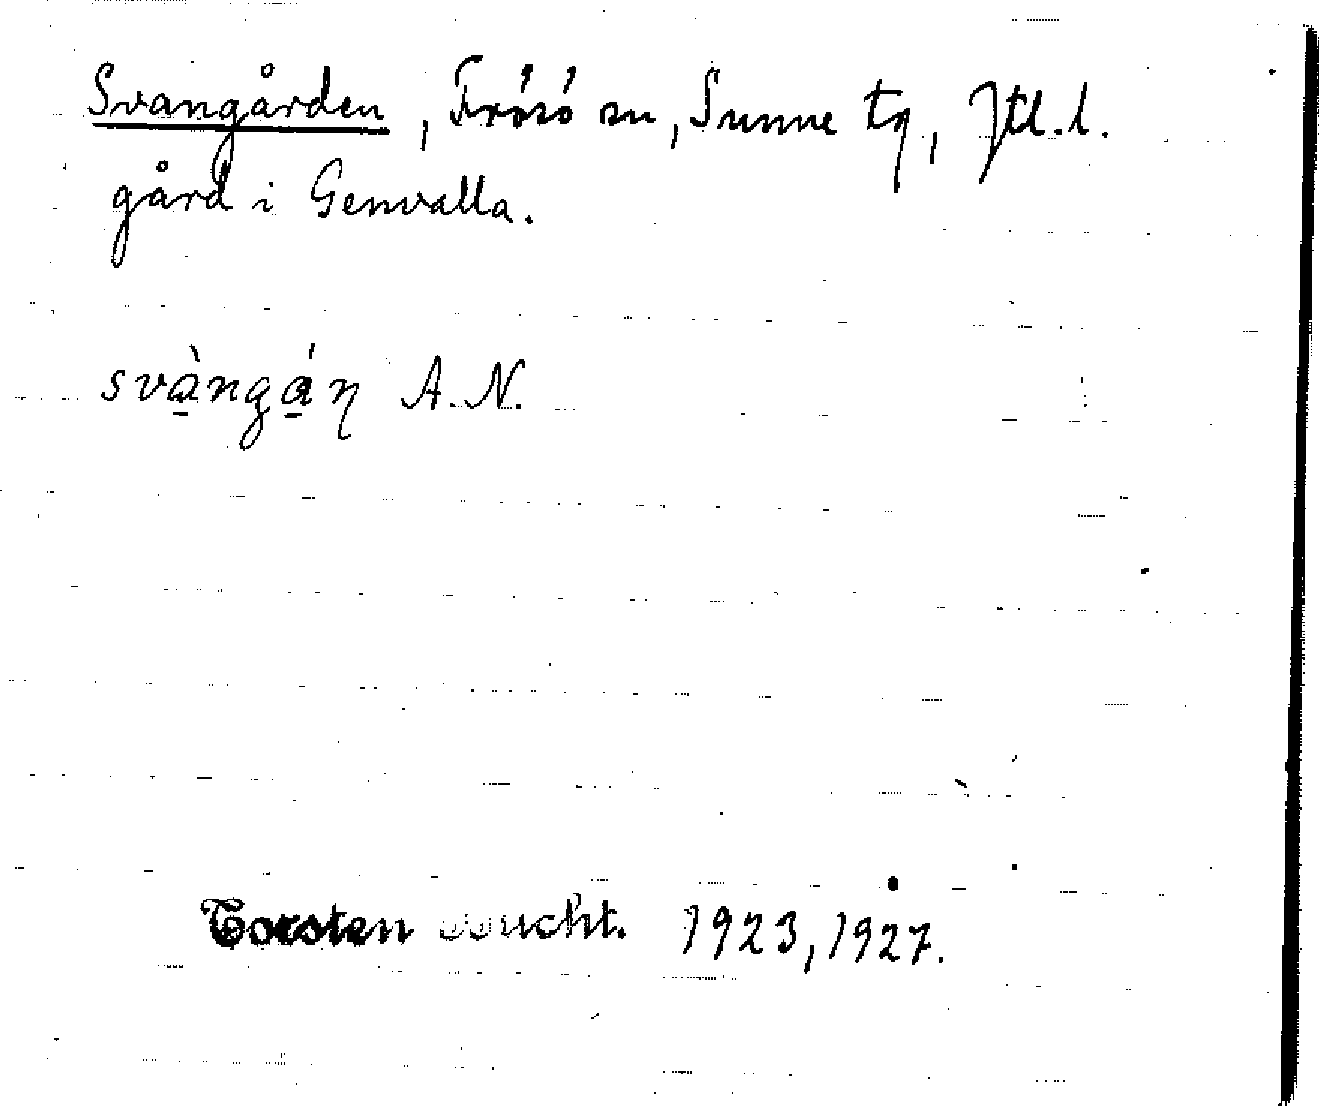 Svangården, Frösö sn, Sunne tg, Jtl. l.
gård i Genvalla.
svà̱ngá̱ɳ A. N.
Torsten Bucht. 1923, 1927.